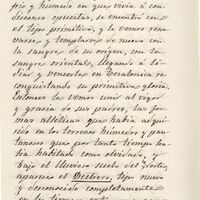 frio y humedo en que vivia á con-
diciones opuestas, se encontró con
el tipo primitivo, y le vemos reno-
varse y templarse de nuevo con
la sangre de su origen, con la
sangre oriental, llegando á li-
diar y vencerlas en Cratonica re-
conquistando su primitiva gloria.
Entonces le vemos unir al vigor
y gracia de sus padres, las for-
mas atléticas que habia adqui-
rido en los terrenos húmedos y pan-
tanosos que por tanto tiempo ha-
bia habitado como olvidado, y
bajo el lluvioso cielo del Norte,
aparece el Destrero, tipo nuevo
y desconocido completamente